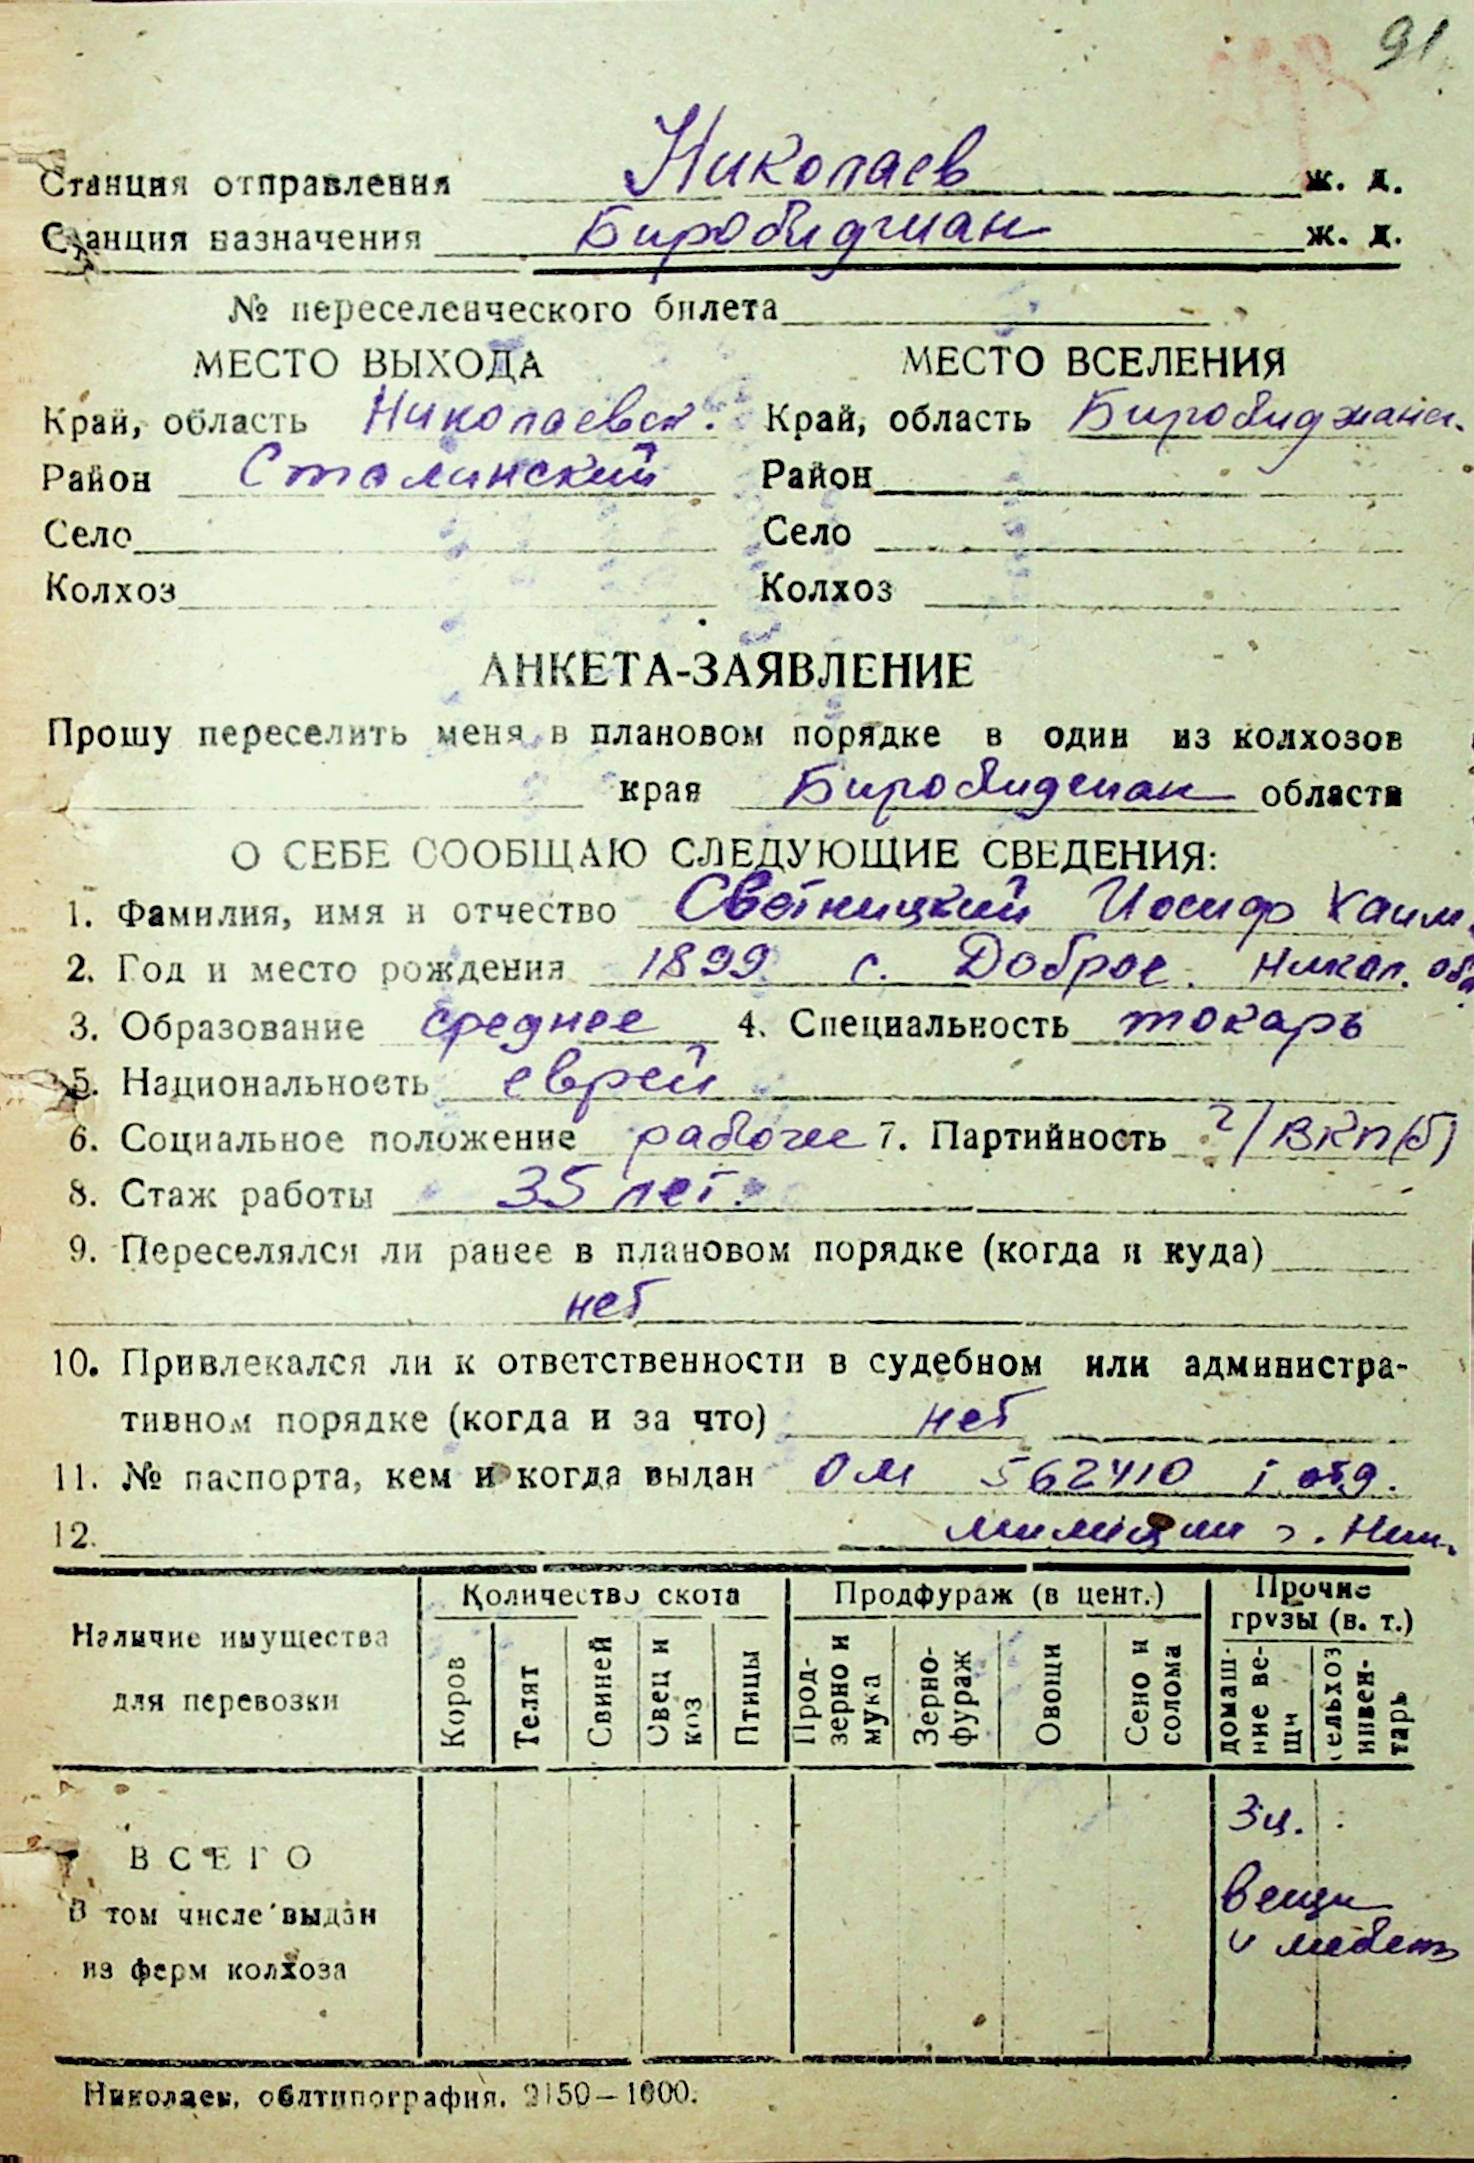 91
Станция отправления Николаев ж. д.
Станция назначения Биробиджан ж. д.
№ переселенческого билета
МЕСТО ВЫХОДА МЕСТО ВСЕЛЕНИЯ
Край, область Николаевск. Край, область Биробиджанск.
Район Сталинский Район
Село Село
Колхоз Колхоз
АНКЕТА-ЗАЯВЛЕНИЕ
Прошу переселить меня в плановом порядке в один из колхозов
края Биробиджан области
О СЕБЕ СООБЩАЮ СЛЕДУЮЩИЕ СВЕДЕНИЯ:
1. Фамилия, имя и отчество Светницкий Иосиф Хаим.
2. Год и место рождения 1899 с. Доброе. Никол. обл.
3. Образование среднее 4. Специальность токарь
5. Национальность еврей
6. Социальное положение рабочий 7. Партийность ч/ВКП(б)
8. Стаж работы 35 лет.
9. Переселялся ли ранее в плановом порядке (когда и куда)
нет
10. Привлекался ли к ответственности в судебном или администра-
тивном порядке (когда и за что) нет
11. № паспорта, кем и когда выдан ОМ 562410 I отд.
12. милиции г. Ник.
Наличие имущества для перевозки Количество скота Продфураж (в цент.) Прочие грузы (в. т.)
Коров Телят Свиней Овец и коз Птицы Прод-зерно и мука Зерно-фураж Овощи Сено и солома домаш-ние ве-щи сельхоз инвен-тарь
ВСЕГО 3 ц.
В том числе выдан вещи
из ферм колхоза и мебель
Николаев, облтипография. 2150—1000.